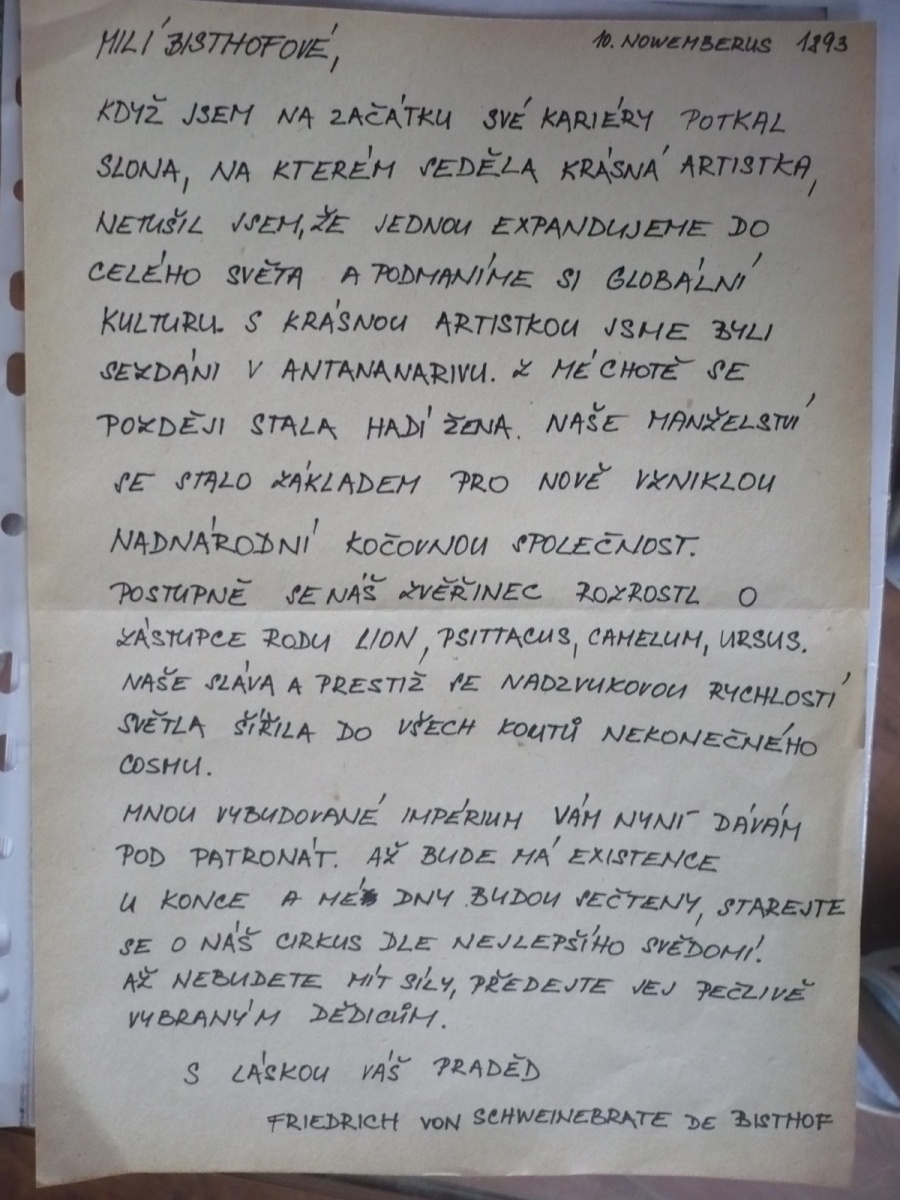 MILÍ BISTHOFOVÉ,
10. NOWEMBERUS 1893
KDYŽ JSEM NA ZAČÁTKU SVÉ KARIÉRY POTKAL
SLONA, NA KTERÉM SEDĚLA KRÁSNÁ ARTISTKA,
NETUŠIL JSEM, ŽE JEDNOU EXPANDUJEME DO
CELÉHO SVĚTA A PODMANÍME SI GLOBÁLNÍ
KULTURU. S KRÁSNOU ARTISTKOU JSME BYLI
SEZDÁNI V ANTANANARIVU. Z MÉ CHOTĚ SE
POZDĚJI STALA HADÍ ŽENA. NAŠE MANŽELSTVÍ
SE STALO ZÁKLADEM PRO NOVĚ VZNIKLOU
NADNÁRODNÍ KOČOVNOU SPOLEČNOST.
POSTUPNĚ SE NÁŠ ZVĚŘINEC ROZROSTL O
ZÁSTUPCE RODU LION, PSITTACUS, CAMELUM, URSUS.
NAŠE SLÁVA A PRESTIŽ SE NADZVUKOVOU RYCHLOSTÍ
SVĚTLA ŠÍŘILA DO VŠECH KOUTŮ NEKONEČNÉHO
COSMU.
MNOU VYBUDOVANÉ IMPÉRIUM VÁM NYNÍ DÁVÁM
POD PATRONÁT. AŽ BUDE MÁ EXISTENCE
U KONCE A MÉ DNY BUDOU SEČTENY, STAREJTE
SE O NÁŠ CIRKUS DLE NEJLEPŠÍHO SVĚDOMÍ.
AŽ NEBUDETE MÍT SÍLY, PŘEDEJTE JEJ PEČLIVĚ
VYBRANÝM DĚDICŮM.
S LÁSKOU VÁŠ PRADĚD
FRIEDRICH VON SCHWEINEBRATE DE BISTHOF